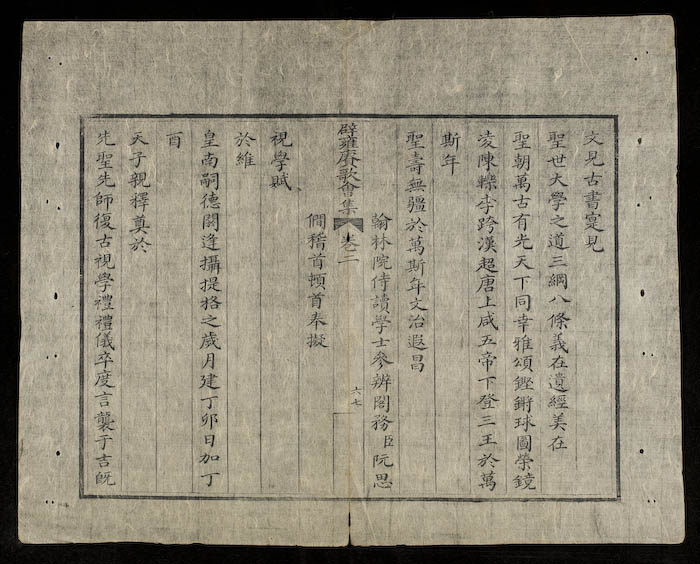 文見古書寔見
聖世大學之道三綱八條義在遺經美在
聖朝萬古有光天下同幸雅頌鏗鏘球圖榮鏡
凌陳轢李跨漢超唐上咸五帝下登三王於萬
斯年
聖壽無疆於萬斯年文治遐昌
翰林院侍讀學士參辦閣務臣阮思
僩稽首頓首奉擬
辟雍賡歌會集 卷二
六七
視學賦
於維
皇南嗣德閼逢攝提格之歲月建丁卯日加丁
酉
天子親釋奠於
先聖先師復古視學禮禮儀卒度言襲于吉旣